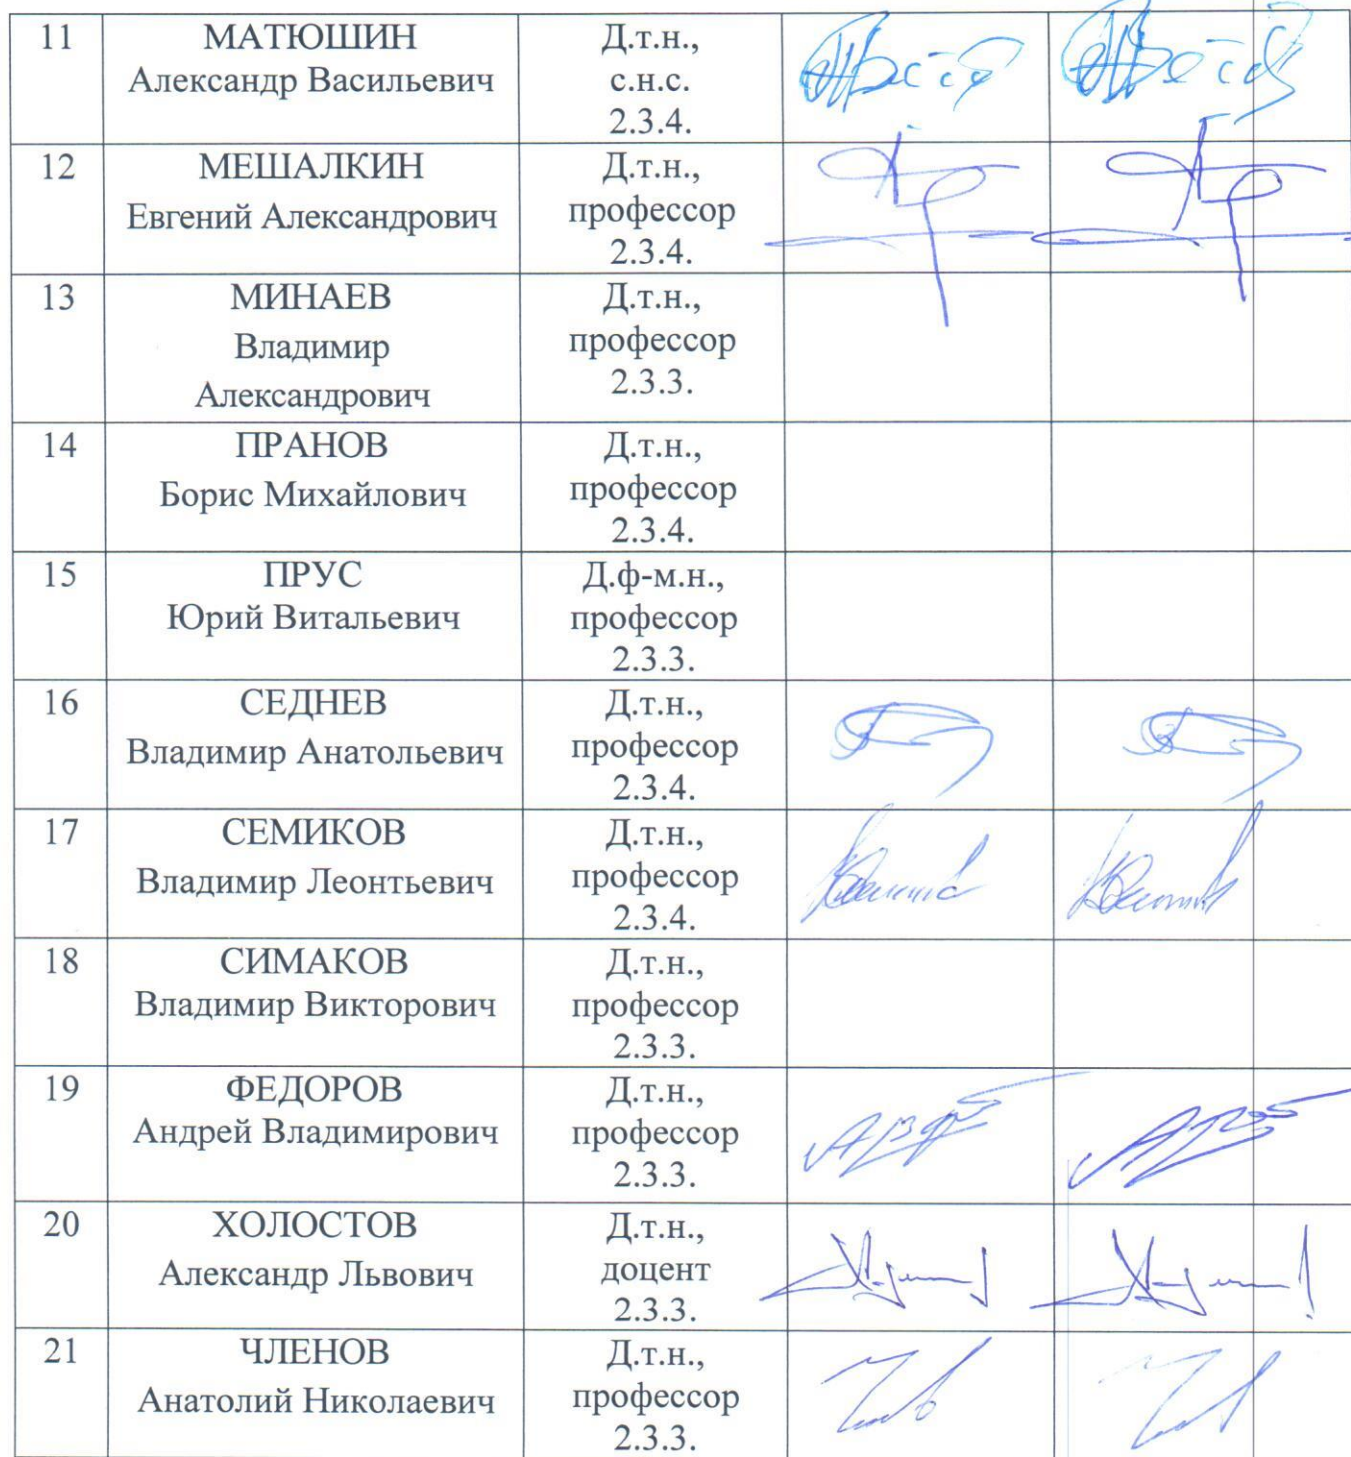 11
МАТЮШИН
Александр Васильевич
Д.т.н.,
с.н.с.
2.3.4.
12
МЕШАЛКИН
Евгений Александрович
Д.т.н.,
профессор
2.3.4.
13
МИНАЕВ
Владимир
Александрович
Д.т.н.,
профессор
2.3.3.
14
ПРАНОВ
Борис Михайлович
Д.т.н.,
профессор
2.3.4.
15
ПРУС
Юрий Витальевич
Д.ф-м.н.,
профессор
2.3.3.
16
СЕДНЕВ
Владимир Анатольевич
Д.т.н.,
профессор
2.3.4.
17
СЕМИКОВ
Владимир Леонтьевич
Д.т.н.,
профессор
2.3.4.
18
СИМАКОВ
Владимир Викторович
Д.т.н.,
профессор
2.3.3.
19
ФЕДОРОВ
Андрей Владимирович
Д.т.н.,
профессор
2.3.3.
20
ХОЛОСТОВ
Александр Львович
Д.т.н.,
доцент
2.3.3.
21
ЧЛЕНОВ
Анатолий Николаевич
Д.т.н.,
профессор
2.3.3.